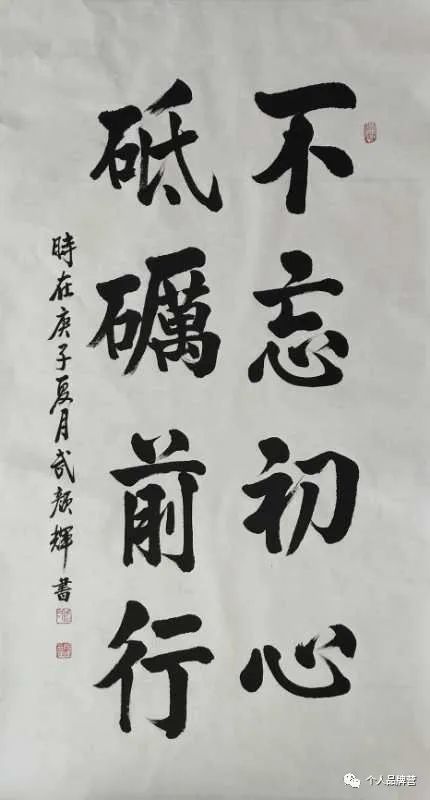 不忘初心
砥礪前行
時在庚子夏月武顏輝書
个人品牌营